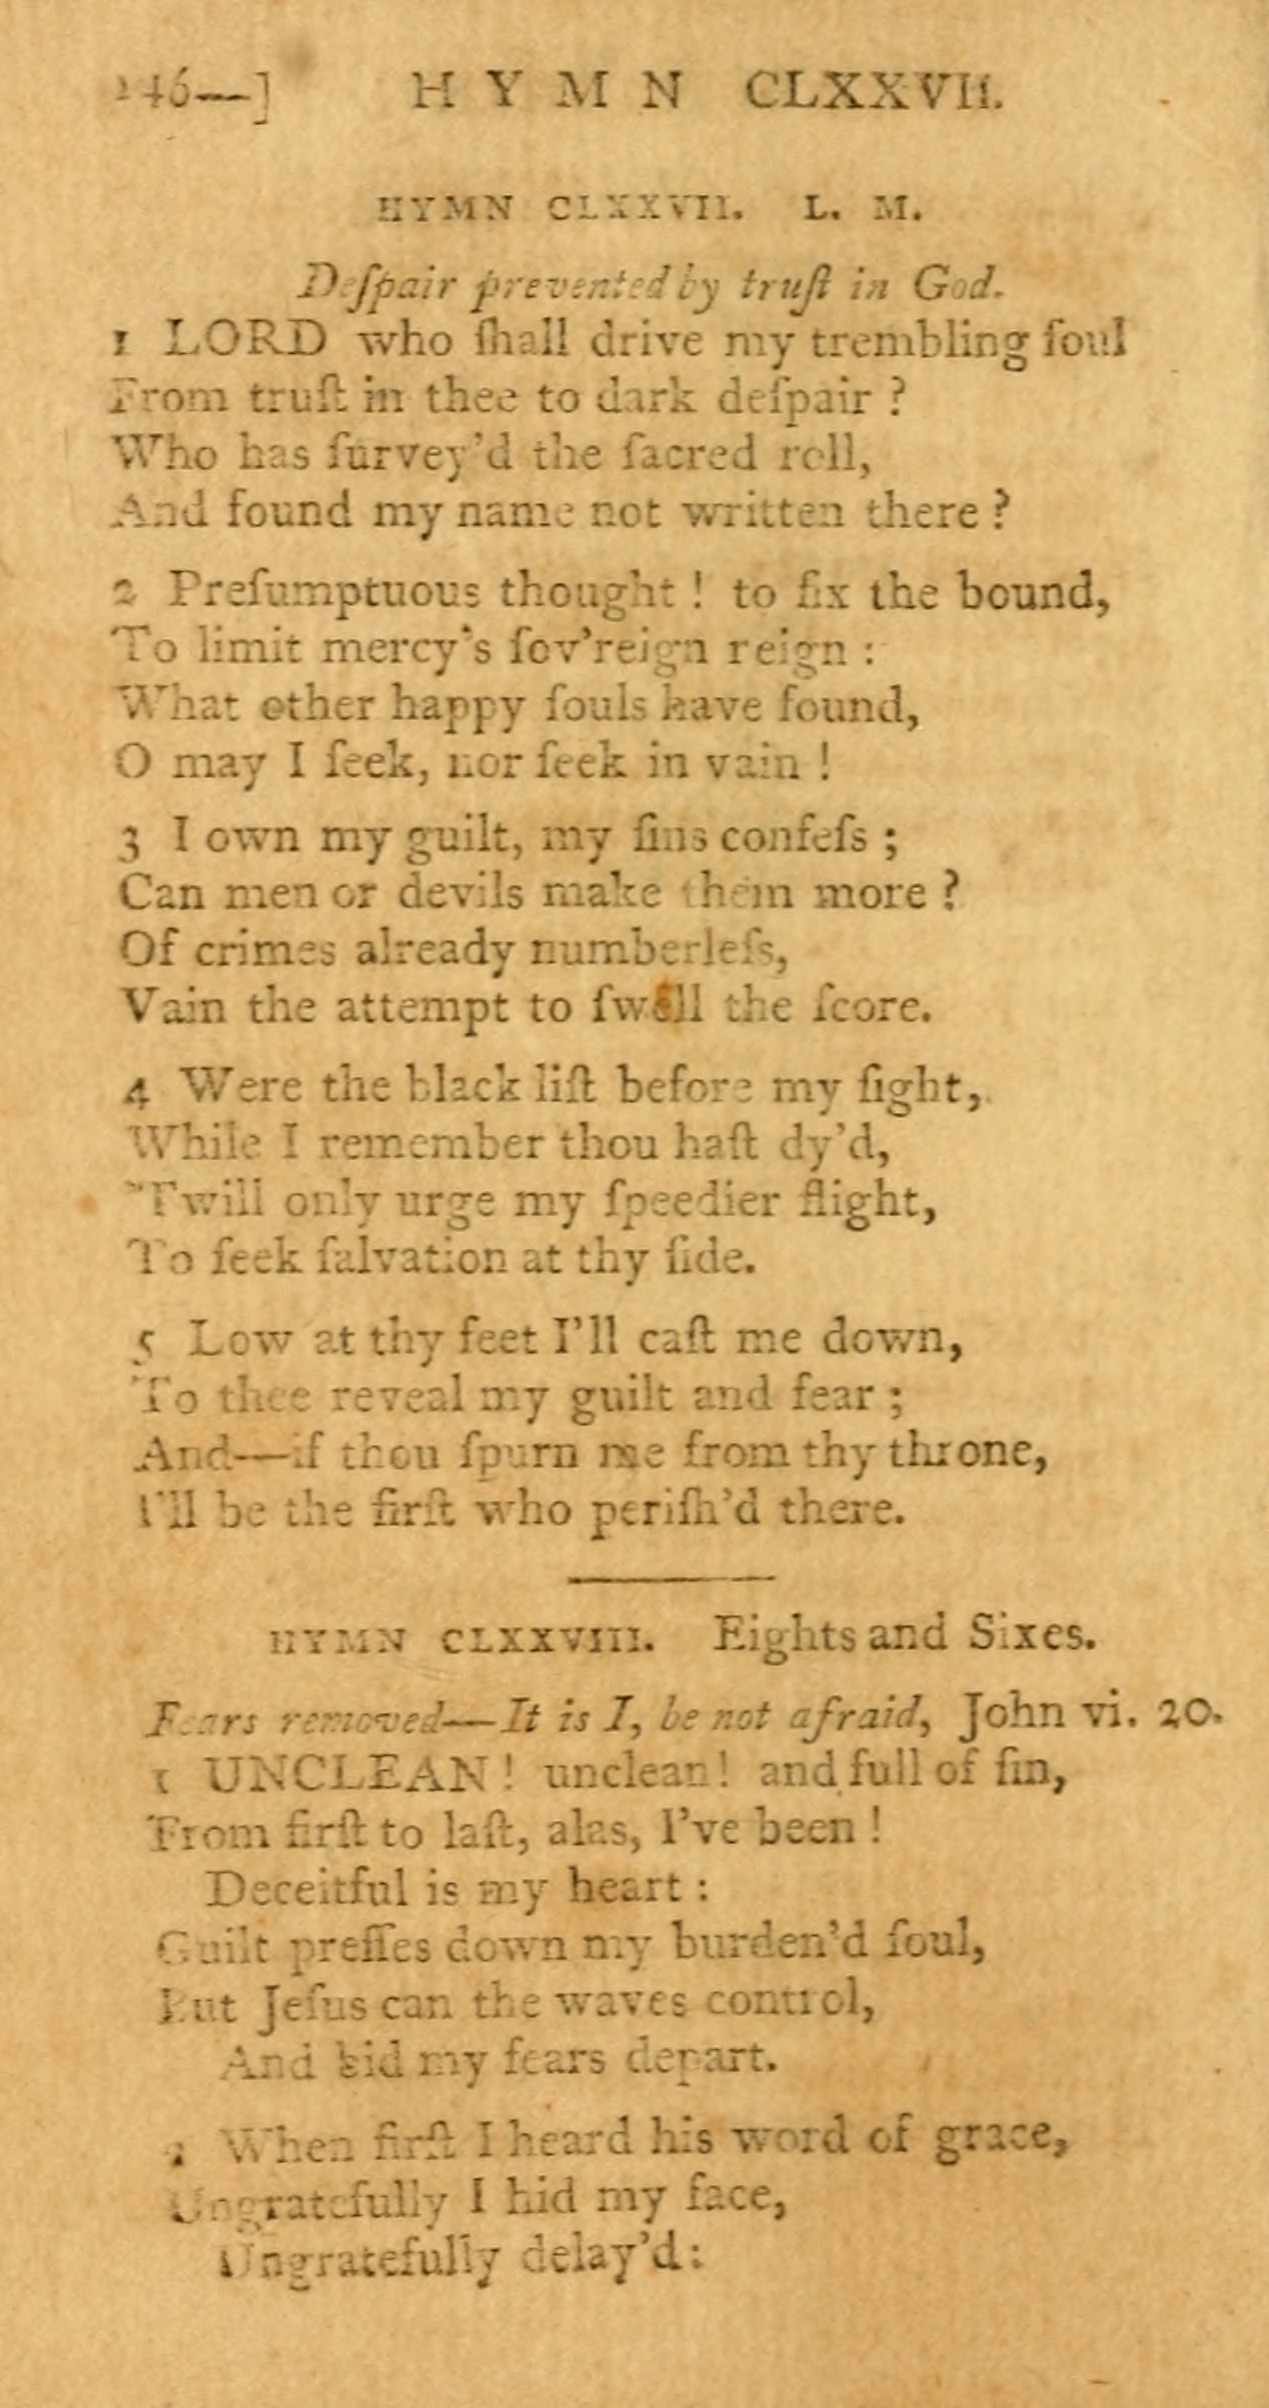 246—]   H Y M N   CLXXVII.
HYMN CLXXVII. L. M.
Deſpair prevented by truſt in God.
1 LORD who ſhall drive my trembling ſoul
From truſt in thee to dark deſpair ?
Who has ſurvey'd the ſacred roll,
And found my name not written there ?
2 Preſumptuous thought ! to fix the bound,
To limit mercy's ſov'reign reign :
What other happy ſouls have found,
O may I ſeek, nor ſeek in vain !
3 I own my guilt, my ſins confeſs ;
Can men or devils make them more ?
Of crimes already numberleſs,
Vain the attempt to ſwell the ſcore.
4 Were the black liſt before my ſight,
While I remember thou haſt dy'd,
'Twill only urge my ſpeedier flight,
To ſeek ſalvation at thy ſide.
5 Low at thy feet I'll caſt me down,
To thee reveal my guilt and fear ;
And—if thou ſpurn me from thy throne,
I'll be the firſt who periſh'd there.
HYMN CLXXVIII. Eights and Sixes.
Fears removed—It is I, be not afraid, John vi. 20.
1 UNCLEAN ! unclean ! and full of ſin,
From firſt to laſt, alas, I've been !
Deceitful is my heart :
Guilt preſſes down my burden'd ſoul,
But Jeſus can the waves control,
And bid my fears depart.
2 When firſt I heard his word of grace,
Ungratefully I hid my face,
Ungratefully delay'd :